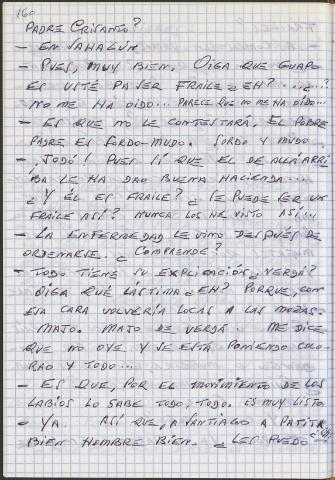 160
PADRE CRISANTO?
- EN SAHAGÚN
- PUES, MUY BIEN. OIGA QUE GUAPO
ES USTÉ PA SER FRAILE ¿EH? ...¿...?
NO ME HA OIDO... PARECE QUE NO ME HA OIDO...
- ES QUE NO LE CONTESTARÁ, EL POBRE
PADRE ES SORDO-MUDO. SORDO Y MUDO
- ¡JODÓ! PUES SÍ QUE EL DE ALLÁ ARRI
BA LE HA DAO BUENA HACIENDA...
¿Y ÉL ES FRAILE? ¿SE PUEDE SER UN
FRAILE ASÍ? NUNCA LOS HE VISTO ASÍ...
- LA ENFERMEDAD LE VINO DESPUÉS DE
ORDENARSE. ¿COMPRENDE?
- TODO TIENE SU EXPLICACIÓN ¿VERDÁ?
OIGA QUÉ LÁSTIMA ¿EH? PORQUE, CON
ESA CARA VOLVERÍA LOCAS A LAS MOZAS.
MAJO. MAJO DE VERDÁ. ME DICE
QUE NO OYE Y SE ESTÁ PONIENDO COLO-
RAO Y TODO...
- ES QUE, POR EL MOVIMIENTO DE LOS
LABIOS LO SABE TODO, TODO. ES MUY LISTO
- YA. ASÍ QUE, A SANTIAGO A PATITA
BIEN HOMBRE BIEN. ¿LES PUEDO